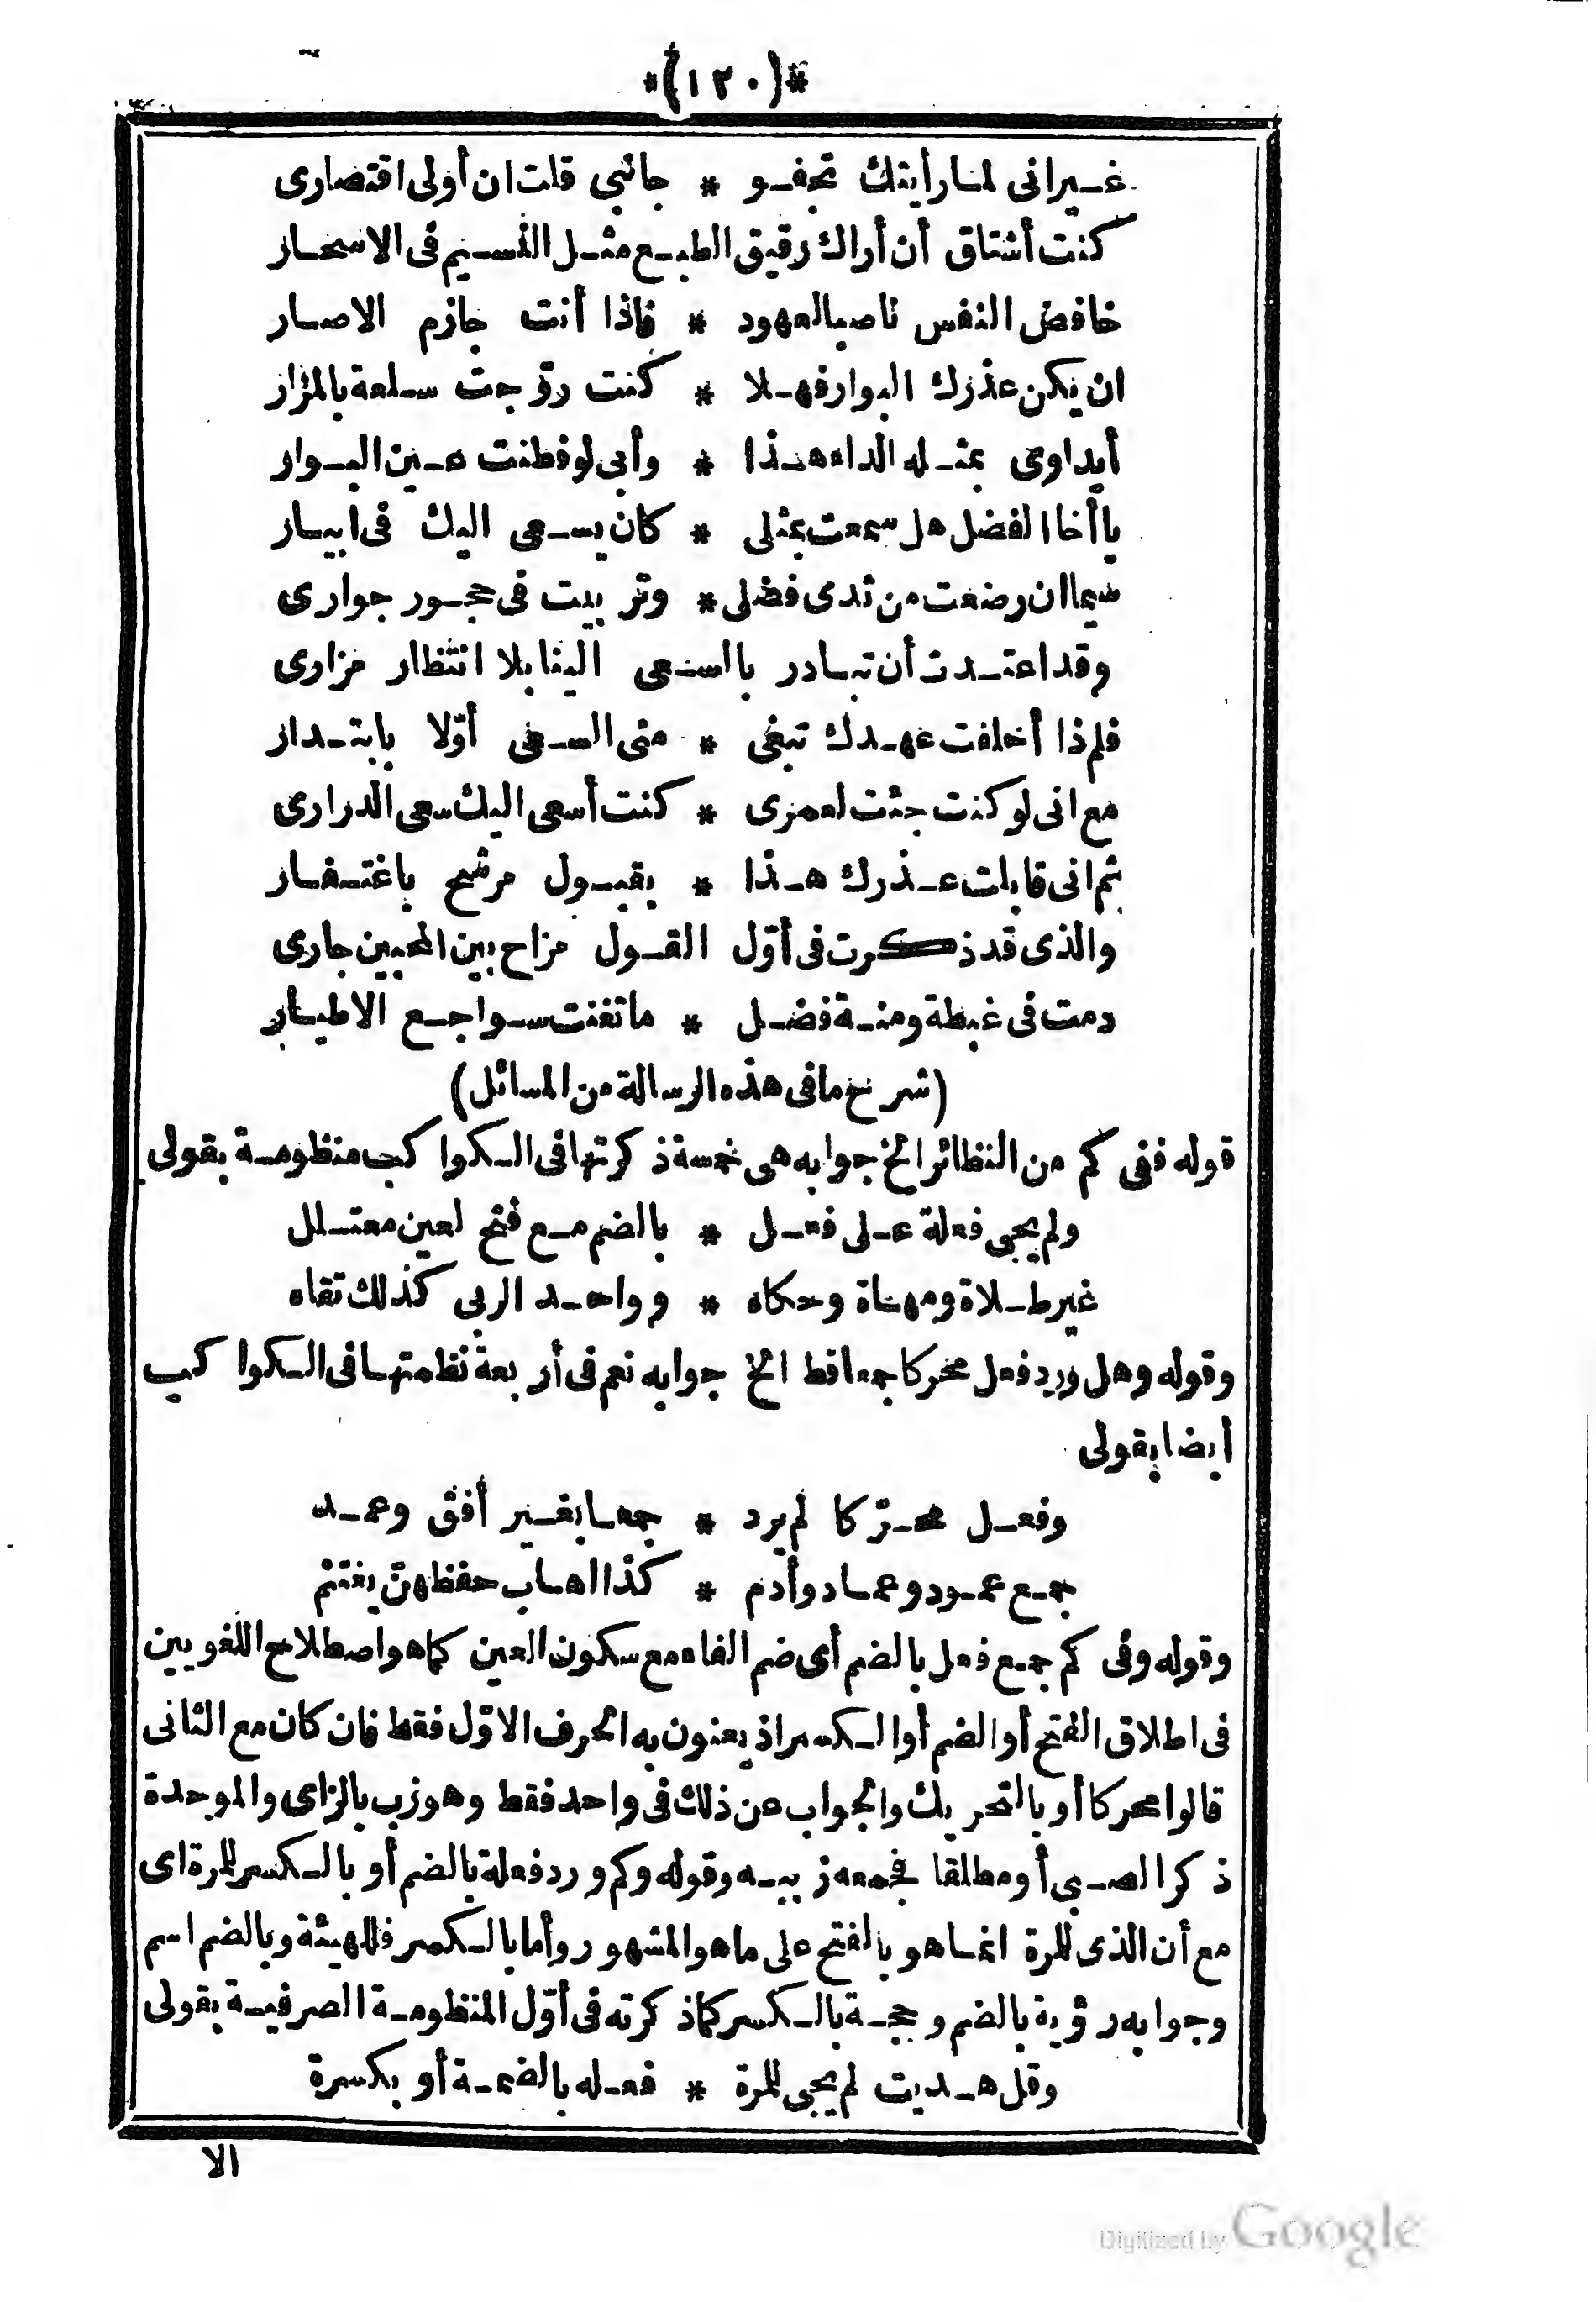 *(١٢٠)*
غير انى لما رأيتك تجفو * جانبى قلت ان أولى اقتصارى
كنت أشتاق أن أراك رقيق الطبع مثل النسيم فى الاسحار
خافض النفس ناصبا لعهود * فاذا أنت جازم الاصار
ان يكن عذرك البوار فهلا * كنت روّجت سلعة بالمزار
أيداوى بمثله الداء هذا * وأبى لو فطنت عين البوار
يا أخا الفضل هل سمعت بمثلى * كان يسعى اليك فى ابيار
سيما ان رضعت من ثدى فضلى * وتربيت فى حجور جوارى
وقد اعتدت أن تبادر بالسعى الينا بلا انتظار مزارى
فلم ذا أخلفت عهدك تبغى * منى السعى أوّلا بابتدار
مع انى لو كنت جئت لعمرى * كنت أسعى اليك سعى الدرارى
ثم انى قابلت عذرك هذا * بقبول مرشح باغتفار
والذى قد ذكرت فى أوّل القول مزاح بين المحبين جارى
دمت فى غبطة ومنة فضل * ما تغنت سواجع الاطيار
(شرح ما فى هذه الرسالة من المسائل)
قوله ففى كم من النظائر الخ جوابه هى خمسة ذكرتها فى الكواكب منظومة بقولى
ولم يجى فعلة على فعل * بالضم مع فتح لعين معتلل
غير طلاة ومهاة وحكاه * وواحد الربى كذلك تقاه
وقوله وهل ورد فعل محركا جمعا قط الخ جوابه نعم فى أربعة نظمتها فى الكواكب
أيضا بقولى
وفعل محرّكا لم يرد * جمعا بغير أفق وعمد
جمع عمود وعماد وأدم * كذا اهاب حفظهنّ يغتنم
وقوله وفى كم جمع فعل بالضم أى ضم الفاء مع سكون العين كما هو اصطلاح اللغويين
فى اطلاق الفتح أو الضم أو الكسر اذ يعنون به الحرف الاوّل فقط فان كان مع الثانى
قالوا محركا أو بالتحريك والجواب عن ذلك فى واحد فقط وهو زب بالزاى والموحدة
ذكر الصبى أو مطلقا فجمعه زببه وقوله وكم ورد فعلة بالضم أو بالكسر للمرة اى
مع أن الذى للمرة انما هو بالفتح على ما هو المشهور وأما بالكسر فللهيئة وبالضم اسم
وجوابه رؤية بالضم وحجة بالكسر كما ذكرته فى أوّل المنظومة الصرفية بقولى
وقل هديت لم يجى للمرة * فعله بالضمة أو بكسرة
الا
Digitized by Google